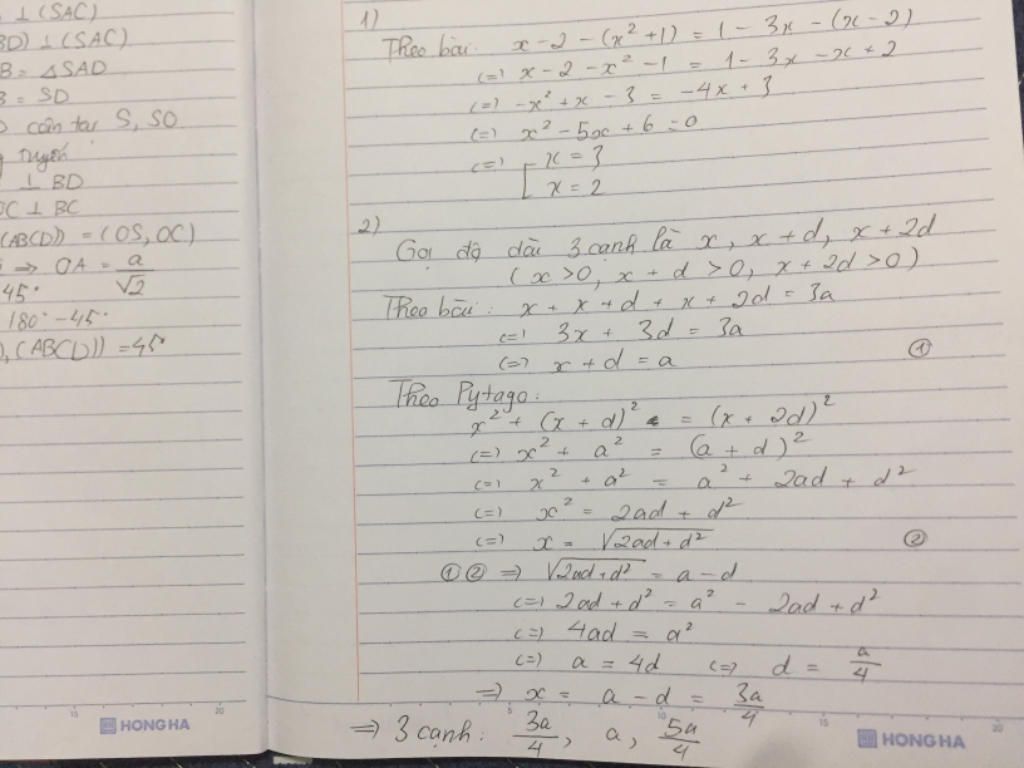 ⊥ (SAC)
BD) ⊥ (SAC)
B = △SAD
B = SD
cân tại S, SO
tuyến
⊥ BD
OC ⊥ BC
(ABCD)) = (OS, OC)
⇒ OA = a/√2
45°
180° - 45°
), (ABCD)) = 45°
HONG HA
1)
Theo bài: x - 2 - (x² + 1) = 1 - 3x - (x - 2)
(=) x - 2 - x² - 1 = 1 - 3x - x + 2
(=) -x² + x - 3 = -4x + 3
(=) x² - 5x + 6 = 0
(=) [ x = 3
x = 2
2)
Gọi độ dài 3 cạnh là x, x + d, x + 2d
(x > 0, x + d > 0, x + 2d > 0)
Theo bài: x + x + d + x + 2d = 3a
(=) 3x + 3d = 3a
(=) x + d = a ①
Theo Pytago:
x² + (x + d)² = (x + 2d)²
(=) x² + a² = (a + d)²
(=) x² + a² = a² + 2ad + d²
(=) x² = 2ad + d²
(=) x = √(2ad + d²) ②
① ② ⇒ √(2ad + d²) = a - d
(=) 2ad + d² = a² - 2ad + d²
(=) 4ad = a²
(=) a = 4d (=) d = a/4
⇒ x = a - d = 3a/4
⇒ 3 cạnh: 3a/4, a, 5a/4
HONG HA